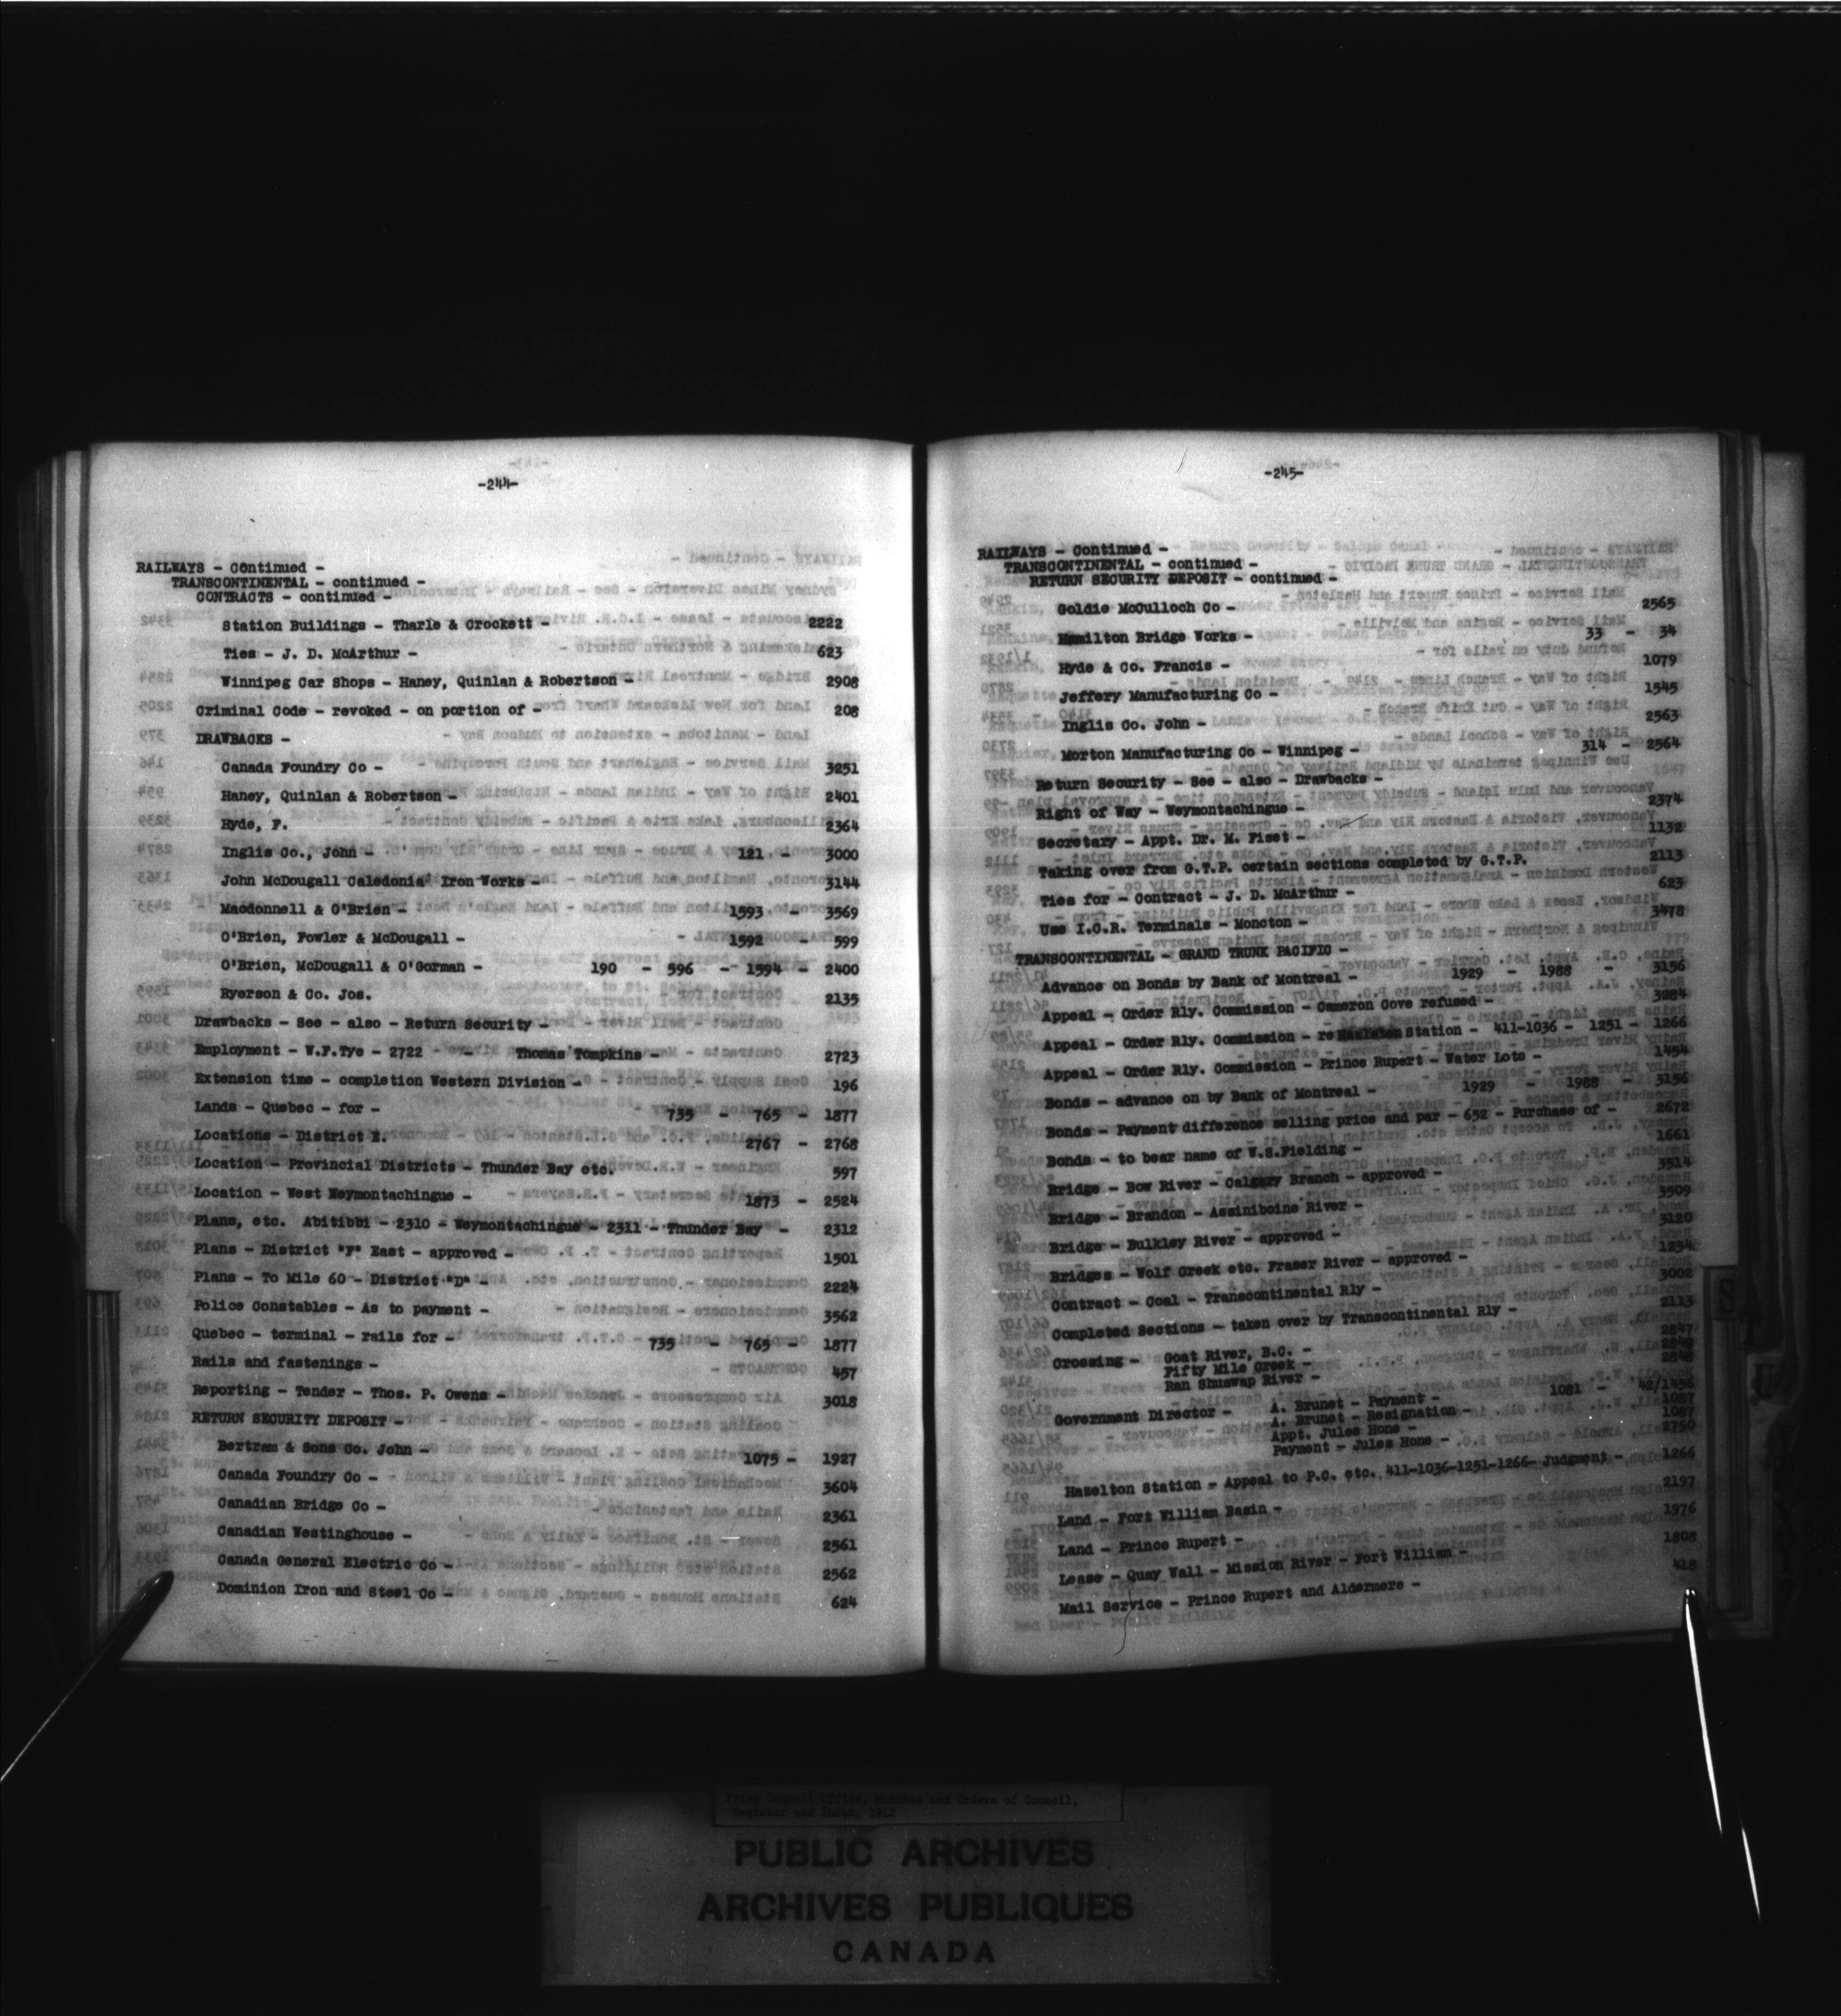 -244-
RAILWAYS - Continued -
TRANSCONTINENTAL - continued -
CONTRACTS - continued -
Station Buildings - Tharle & Crockett - 2222
Ties - J. D. McArthur - 623
Winnipeg Car Shops - Haney, Quinlan & Robertson - 2908
Criminal Code - revoked - on portion of - 208
DRAWBACKS -
Canada Foundry Co - 3251
Haney, Quinlan & Robertson - 2401
Hyde, F. 2364
Inglis Co., John - 121 - 3000
John McDougall Caledonia Iron Works - 3144
Macdonnell & O'Brien - 1593 - 3569
O'Brien, Fowler & McDougall - 1592 - 599
O'Brien, McDougall & O'Gorman - 190 - 596 - 1594 - 2400
Ryerson & Co. Jos. 2135
Drawbacks - See - also - Return Security -
Employment - W.F.Tye - 2722 - Thomas Tompkins - 2723
Extension time - completion Western Division - 196
Lands - Quebec - for - 735 - 765 - 1877
Locations - District E. 2767 - 2768
Location - Provincial Districts - Thunder Bay etc. 597
Location - West Weymontachingue - 1873 - 2524
Plans, etc. Abitibbi - 2310 - Weymontachingue - 2311 - Thunder Bay - 2312
Plans - District "F" East - approved - 1501
Plans - To Mile 60 - District "D" - 2224
Police Constables - As to payment - 3562
Quebec - terminal - rails for - 735 - 765 - 1877
Rails and fastenings - 457
Reporting - Tender - Thos. P. Owens - 3018
RETURN SECURITY DEPOSIT -
Bertram & Sons Co. John - 1075 - 1927
Canada Foundry Co - 3604
Canadian Bridge Co - 2361
Canadian Westinghouse - 2561
Canada General Electric Co - 2562
Dominion Iron and Steel Co - 624
-245-
RAILWAYS - Continued -
TRANSCONTINENTAL - continued -
RETURN SECURITY DEPOSIT - continued -
Goldie McCulloch Co - 2565
Hamilton Bridge Works - 33 - 34
Hyde & Co. Francis - 1079
Jeffery Manufacturing Co - 1545
Inglis Co. John - 2563
Morton Manufacturing Co - Winnipeg - 314 - 2564
Return Security - See - also - Drawbacks -
Right of Way - Weymontachingue - 2374
Secretary - Appt. Dr. M. Fiset - 1132
Taking over from G.T.P. certain sections completed by G.T.P. 2113
Ties for - Contract - J. D. McArthur - 623
Use I.C.R. Terminals - Moncton - 3478
TRANSCONTINENTAL - GRAND TRUNK PACIFIC -
Advance on Bonds by Bank of Montreal - 1929 - 1988 - 3156
Appeal - Order Rly. Commission - Cameron Cove refused - 3284
Appeal - Order Rly. Commission - re Hazleton Station - 411-1036 - 1251 - 1266
Appeal - Order Rly. Commission - Prince Rupert - Water Lots - 1454
Bonds - advance on by Bank of Montreal - 1929 - 1988 - 3156
Bonds - Payment difference selling price and par - 652 - Purchase of - 2672
Bonds - to bear name of W.S.Fielding - 1661
Bridge - Bow River - Calgary Branch - approved - 3514
Bridge - Brandon - Assiniboine River - 3509
Bridge - Bulkley River - approved - 3120
Bridges - Wolf Creek etc. Fraser River - approved - 1234
Contract - Coal - Transcontinental Rly - 3002
Completed Sections - taken over by Transcontinental Rly - 2113
Crossing - Goat River, B.C. - 2847
Fifty Mile Creek - 2848
Ran Shuswap River - 2848
Government Director - A. Brunet - Payment - 1081 - 42/1456
A. Brunet - Resignation - 1087
Appt. Jules Hone - 1087
Payment - Jules Hone - 2750
Hazelton Station - Appeal to P.C. etc. 411-1036-1251-1266- Judgment - 1266
Land - Fort William Basin - 2197
Land - Prince Rupert - 1976
Lease - Quay Wall - Mission River - Fort William - 1808
Mail Service - Prince Rupert and Aldermere - 418
S
U
Privy Council Office, Minutes and Orders of Council,
Register and Index, 1912
PUBLIC ARCHIVES
ARCHIVES PUBLIQUES
CANADA